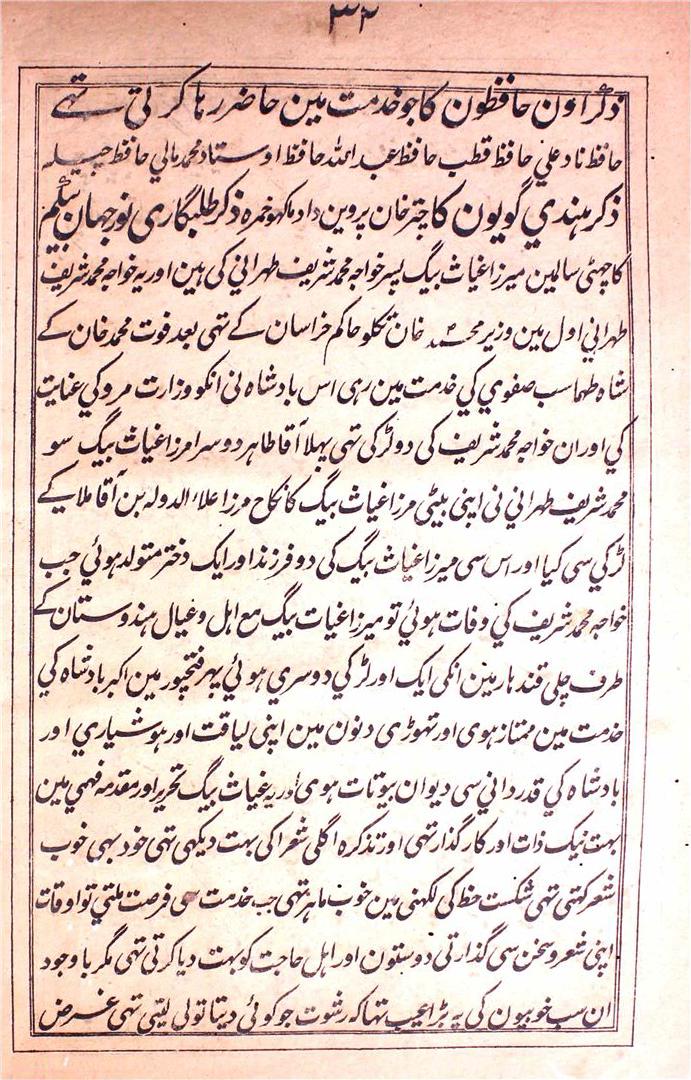 ۳۲
ذکر اون حافظون کا جو خدمت مین حاضر رہا کرتی تہے
حافظ ناد علي حافظ قطب حافظ عبد اللہ حافظ اوستاد محمد مالي حافظ جیلہ
ذکر ہندي گویون کا چتر خان پروین داد ماکہو خمرہ ذکر طلبگاری نور جہان بیگم
کا چہٹی سالمین میرزا غیاث بیگ پسر خواجہ محمد شریف طہراني کی ہین اور یہ خواجہ محمد شریف
طہراني اول مین وزیر محمد خان تکلو حاکم خراسان کے تہی بعد فوت محمد خان کے
شاہ طہماسب صفوي کی خدمت مین رہی اس بادشاہ نی انکو وزارت مرو کي عنایت
کي اور ان خواجہ محمد شریف کی دو لڑکی تہی پہلا آقا طاہر دوسرا مرزا غیاث بیگ سو
محمد شریف طہراني نی اپنی بیٹی مرزا غیاث بیگ کا نکاح مرزا علاء الدولہ بن آقا ملا یکے
لڑکي سی کیا اور اس سی میرزا غیاث بیگ کی دو فرزند اور ایک دختر متولد ہوئي جب
خواجہ محمد شریف کي وفات ہوئي تو میرزا غیاث بیگ مع اہل و عیال ہندوستان کے
طرف چلی قندہار مین انکی ایک اور لڑکي دوسري ہوئي پہر فتحپور مین اکبر بادشاہ کي
خدمت مین ممتاز ہوی اور تہوڑی دنون مین اپنی لیاقت اور ہوشیاري اور
بادشاہ کي قدرداني سی دیوان بیوتات ہوی اور یہ غیاث بیگ تحریر اور مقدمہ فہمي مین
بہت نیک ذات اور کار گذار تہی اور تذکرہ اگلی شعرا کی بہت دیکہی تہی خود بہی خوب
شعر کہتی تہی شکست خط کی لکہنی مین خوب ماہر تہی جب خدمت سی فرصت ملتي تو اوقات
اپنی شعر و سخن سی گذارتی دوستون اور اہل حاجت کو بہت دیا کرتی تہی مگر باوجود
ان سب خوبیون کی یہ بڑا عیب تہا کہ رشوت جو کوئي دیتا تو لی لیتی تہی غرض